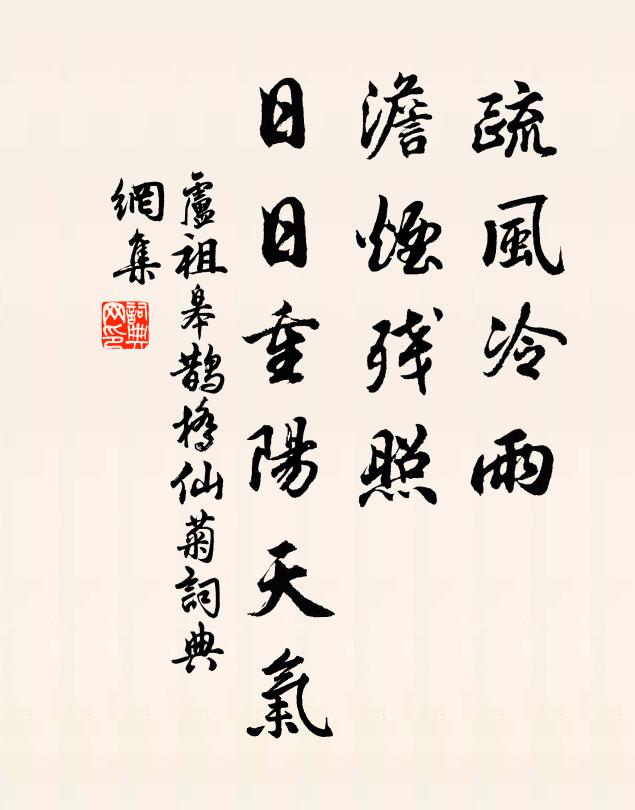 疏風冷雨
澹煙残照
日日重陽天氣
盧祖皋鵲橋仙菊詞典
網集
詞典
网印